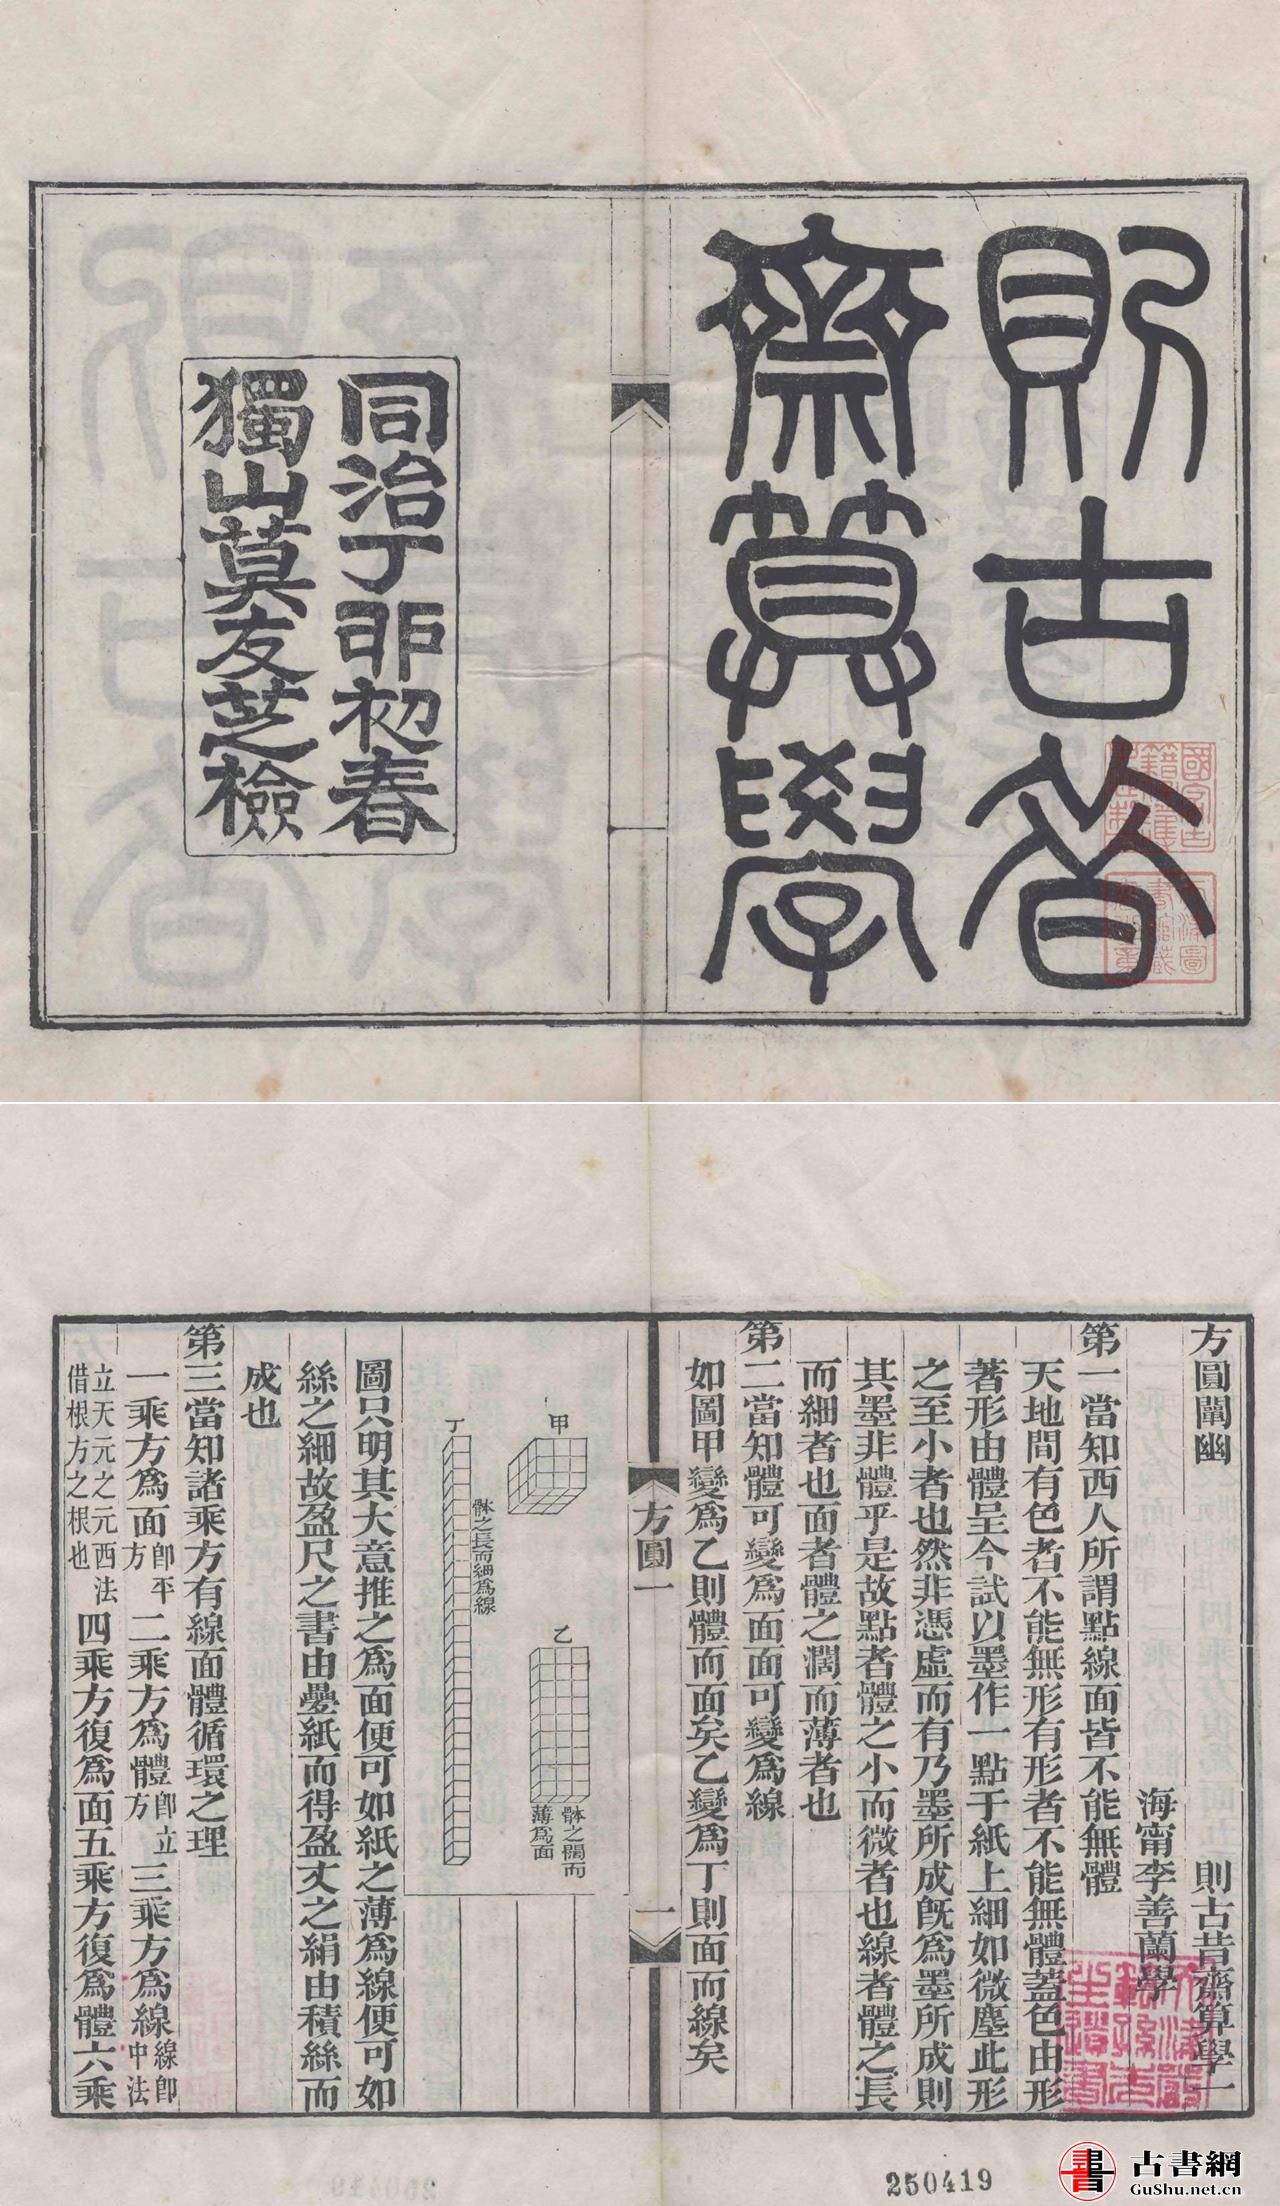 則古昔
齋算學
同治丁卯初春
獨山莫友芝檢
方圓闡幽
則古昔齋算學一
海甯李善蘭學
第一當知西人所謂點線面皆不能無體
天地間有色者不能無形有形者不能無體蓋色由形
著形由體呈今試以墨作一點于紙上細如微塵此形
之至小者也然非憑虛而有乃墨所成旣爲墨所成則
其墨非體乎是故點者體之小而微者也線者體之長
而細者也面者體之濶而薄者也
第二當知體可變爲面面可變爲線
如圖甲變爲乙則體而面矣乙變爲丁則面而線矣
方圓一
一
甲
乙
體之闊而
薄爲面
丁
體之長而細爲線
圖只明其大意推之爲面便可如紙之薄爲線便可如
絲之細故盈尺之書由疊紙而得盈丈之絹由積絲而
成也
第三當知諸乘方有線面體循環之理
一乘方爲面卽平方二乘方爲體卽立方三乘方爲線線卽中法
立天元之元西法借根方之根也四乘方復爲面五乘方復爲體六乘
250419
書 古書網
GuShu.net.cn